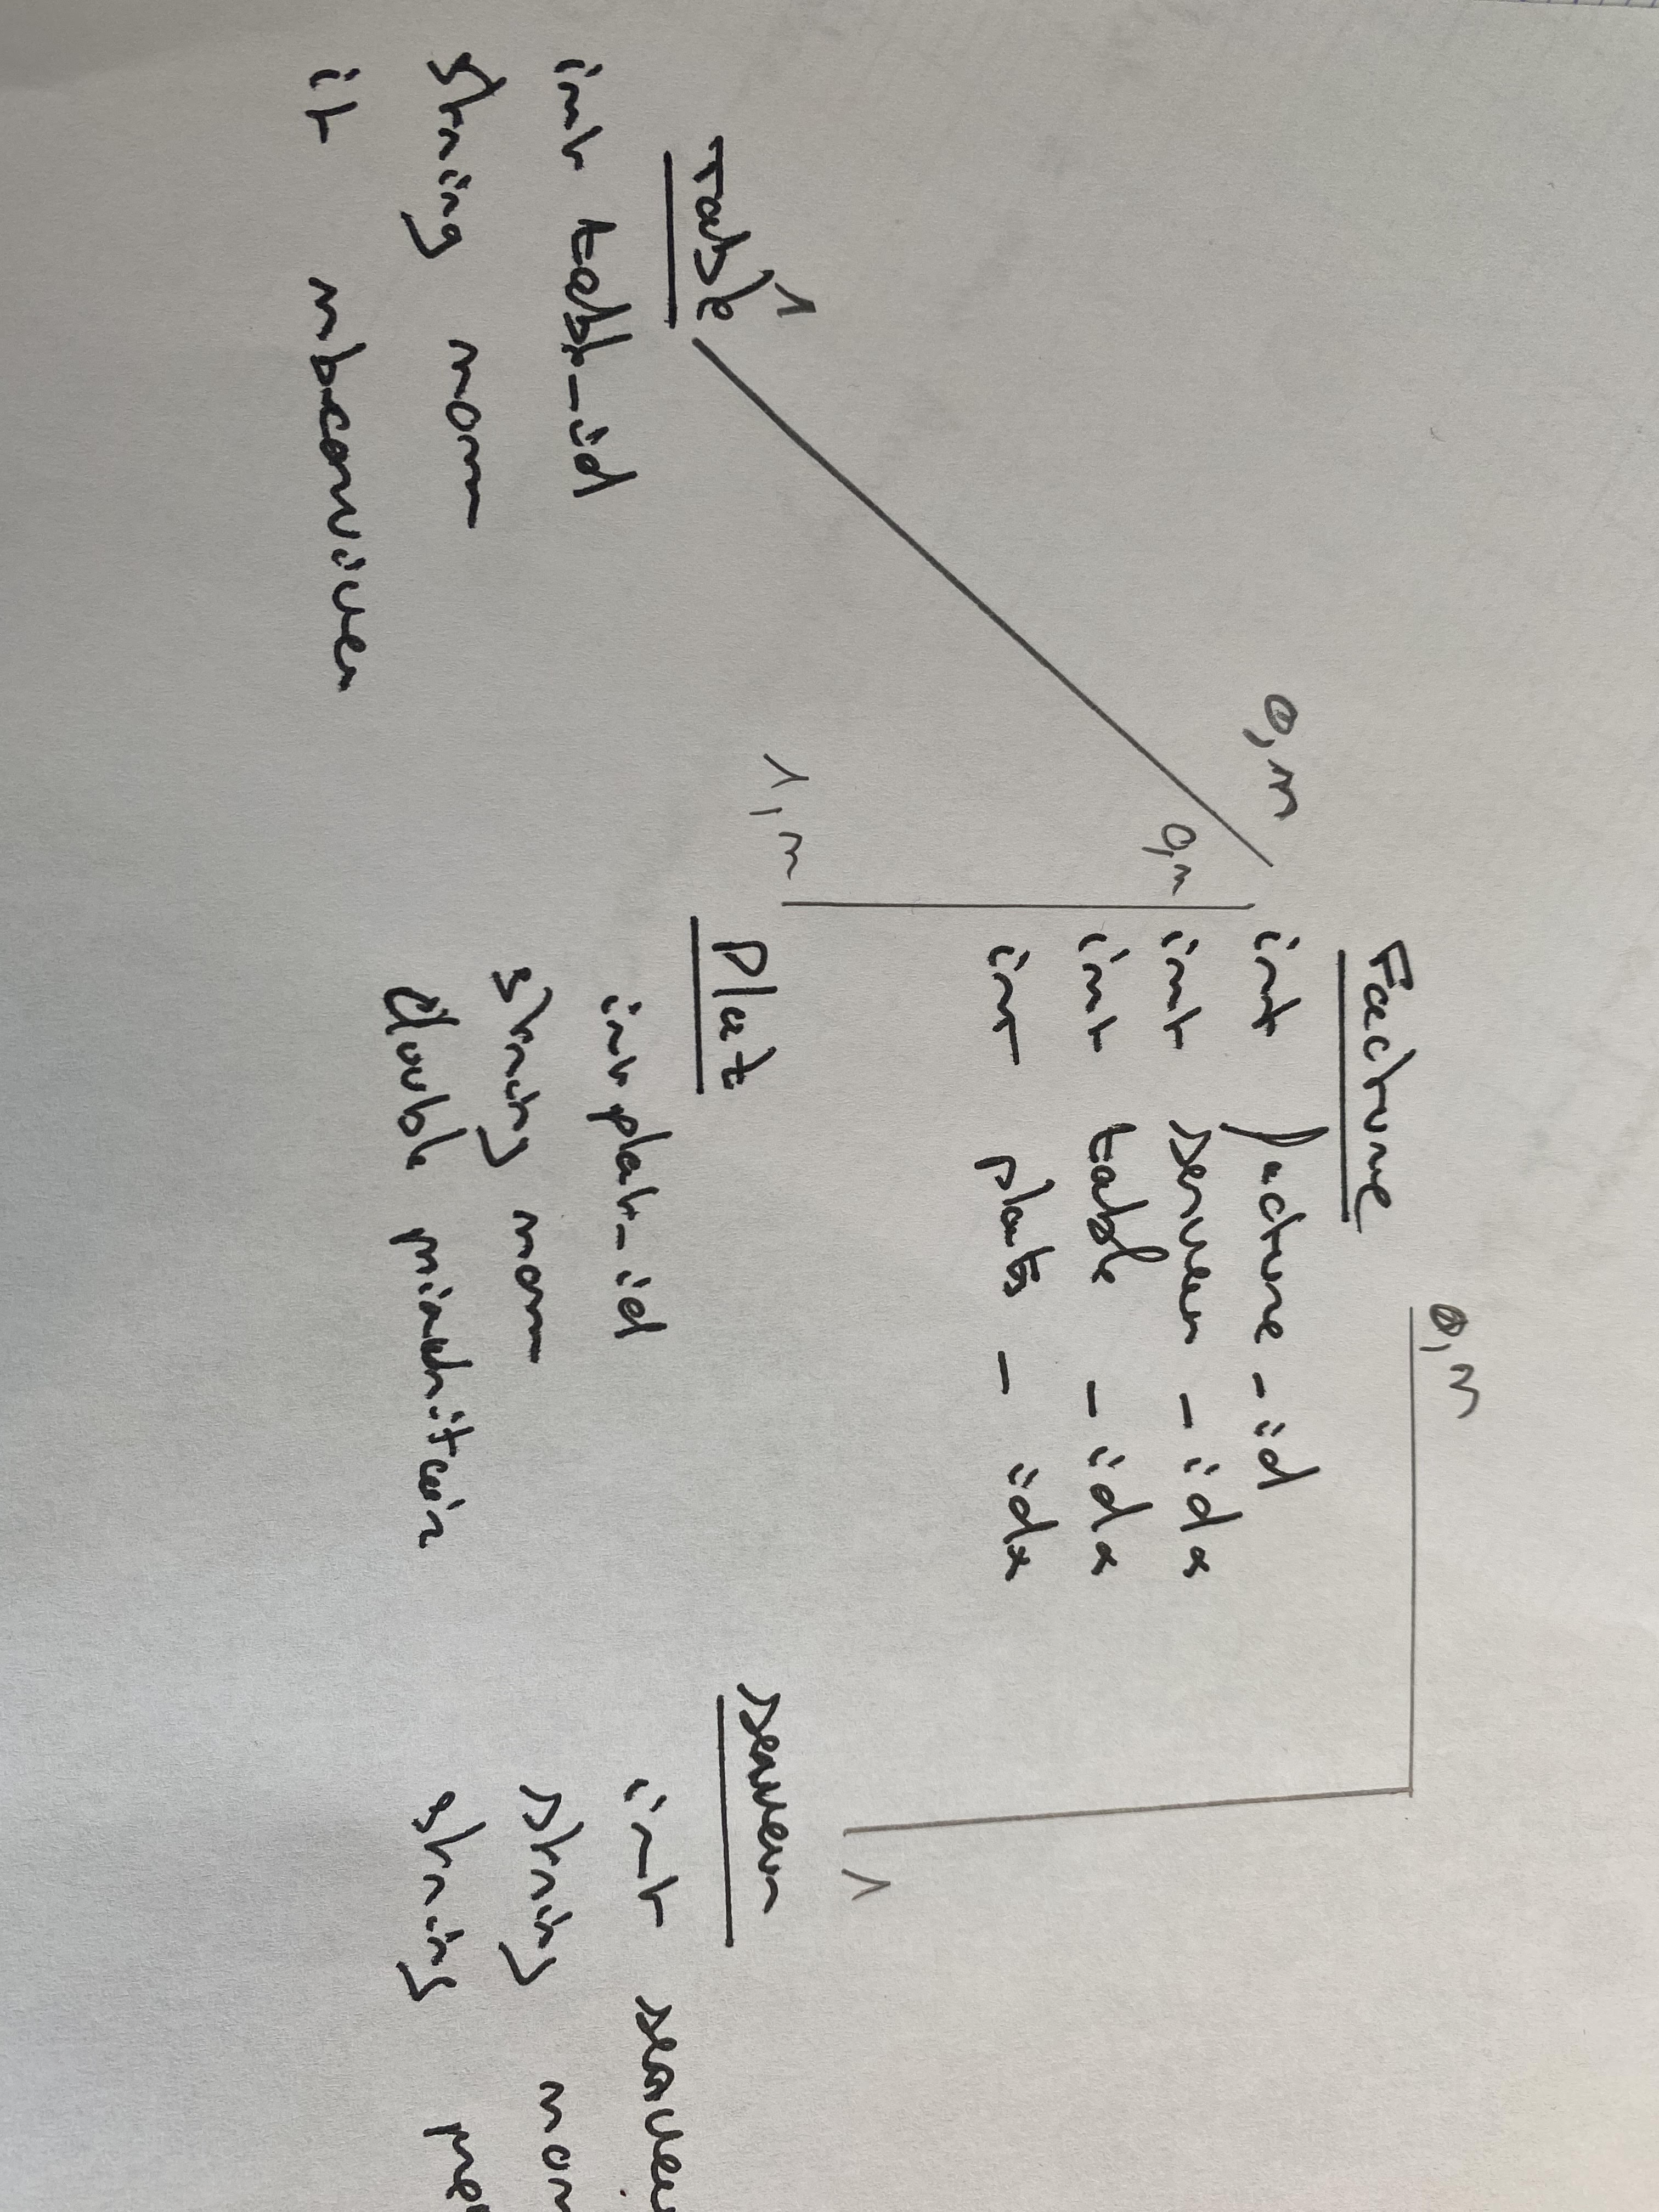 Facture
0,n
int facture-id
int serveur-id*
int table-id*
int plats-id*
0,n
0,n
1
1,n
1
Table
int table-id
string nom
it nbconviver
Plat
int plat-id
string nom
double prixunitair
serveur
int serveu
string nom
string pre